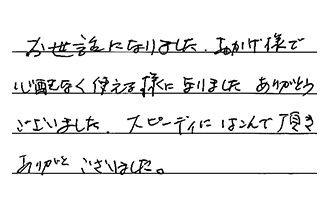 お世話になりました。おかげ様で
心配なく使える様になりました ありがとう
ございました。スピーディに はこんで頂き
ありがとう ございました。